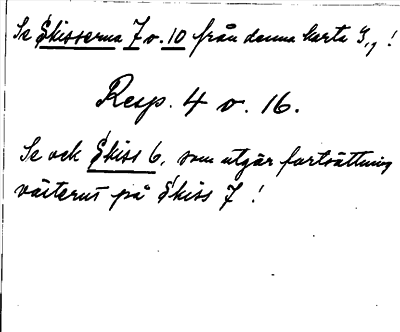 Se Skisserna 7 o. 10 från denna karta 3,, !
Resp. 4 o. 16.
Se ock Skiss 6, som utgör fortsättning
västerut på Skiss 7 !